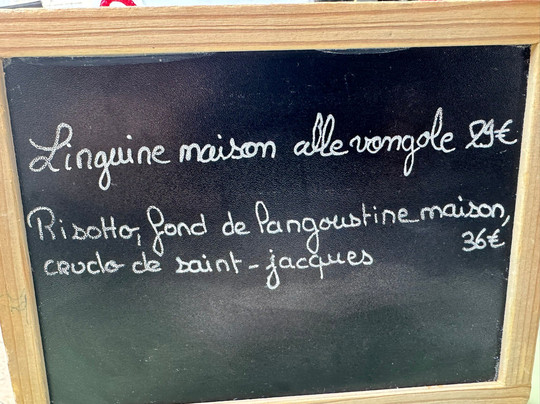 Linguine maison alle vongole 29€
Risotto, fond de langoustine maison,
crudo de saint-jacques 36€